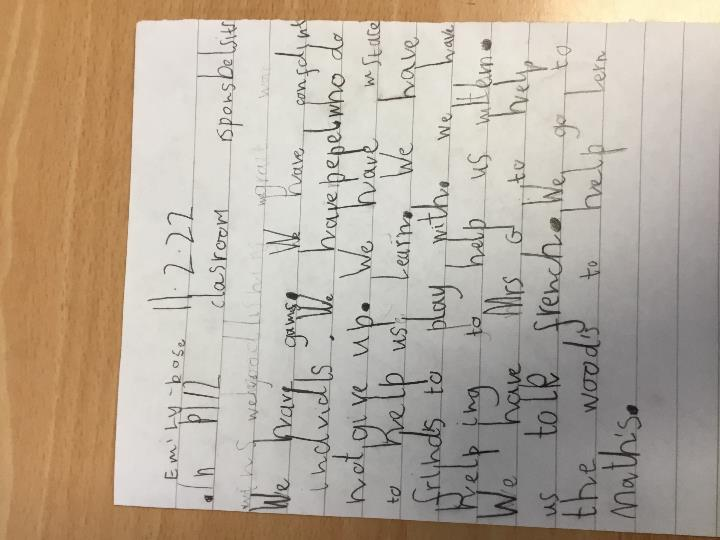 Emily-bose 11.2.22
In P1/2 clasroom rsponsbelsits
We have games. We have consdint
indvidls. We have pepel who do
not give up. We have mstacs
to help us learn. We have
frinds to play with. We have
Help ing to help us with em.
We have Mrs G to help
us tolk french. We go to
the woods to help lern
Maths.